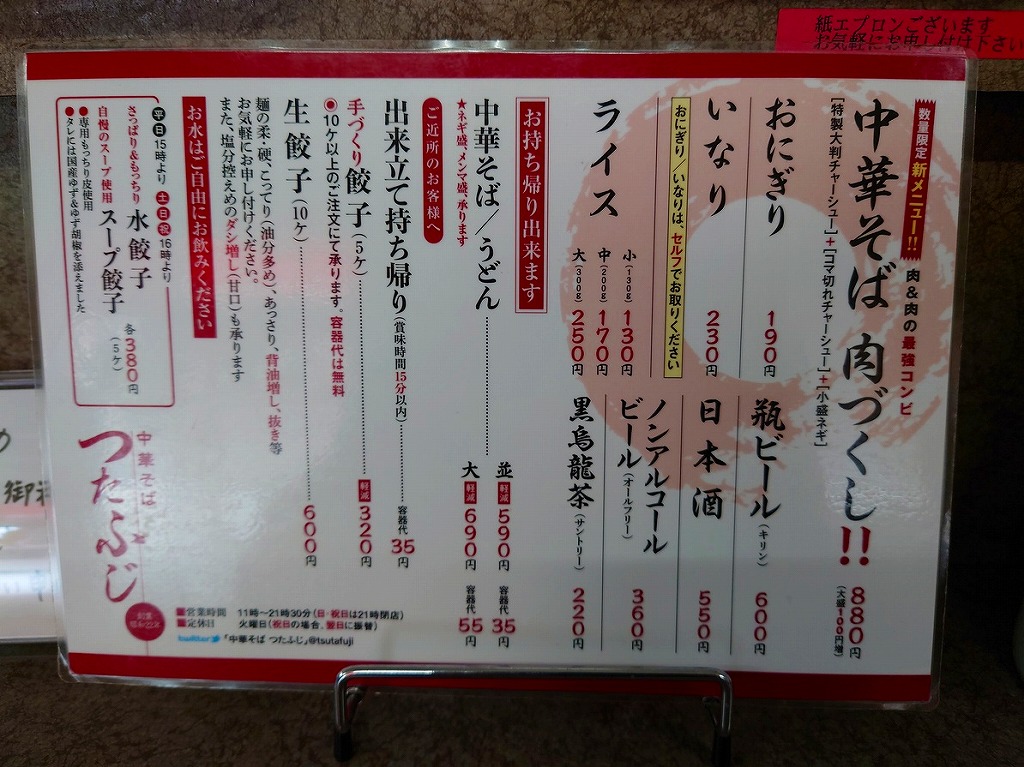 紙エプロンございます
お気軽にお申し付け下さい
数量限定 新メニュー!! 肉&肉の最強コンビ
中華そば 肉づくし!! 880円
(大盛100円増)
[特製大判チャーシュー]+[コマ切れチャーシュー]+[小盛ネギ]
おにぎり 190円
いなり 230円
おにぎり/いなりは、セルフでお取りください
ライス
小(130g) 130円
中(200g) 170円
大(300g) 250円
瓶ビール(キリン) 600円
日本酒 550円
ノンアルコール
ビール(オールフリー) 360円
黒烏龍茶(サントリー) 220円
お持ち帰り出来ます
中華そば/うどん
並 軽減 590円 容器代 35円
大 軽減 690円 容器代 55円
★ネギ盛、メンマ盛、承ります
ご近所のお客様へ
出来立て持ち帰り(賞味時間15分以内) 容器代 35円
手づくり餃子(5ケ) 軽減 320円
◉10ケ以上のご注文にて承ります。容器代は無料
生餃子(10ケ) 600円
麺の柔・硬、こってり(油分多め)、あっさり、背油増し、抜き等
お気軽にお申し付けください。
また、塩分控えめのダシ増し(甘口)も承ります
お水はご自由にお飲みください
平日15時より 土日祝16時より
さっぱり&もっちり 水餃子
自慢のスープ使用 スープ餃子
各380円
(5ケ)
●専用もっちり皮使用
●タレには国産ゆず&ゆず胡椒を添えました
中華そば
つたふじ
創業
昭和22年
■営業時間 11時〜21時30分(日・祝日は21時閉店)
■定休日 火曜日(祝日の場合、翌日に振替)
twitter 「中華そば つたふじ」@tsutafuji